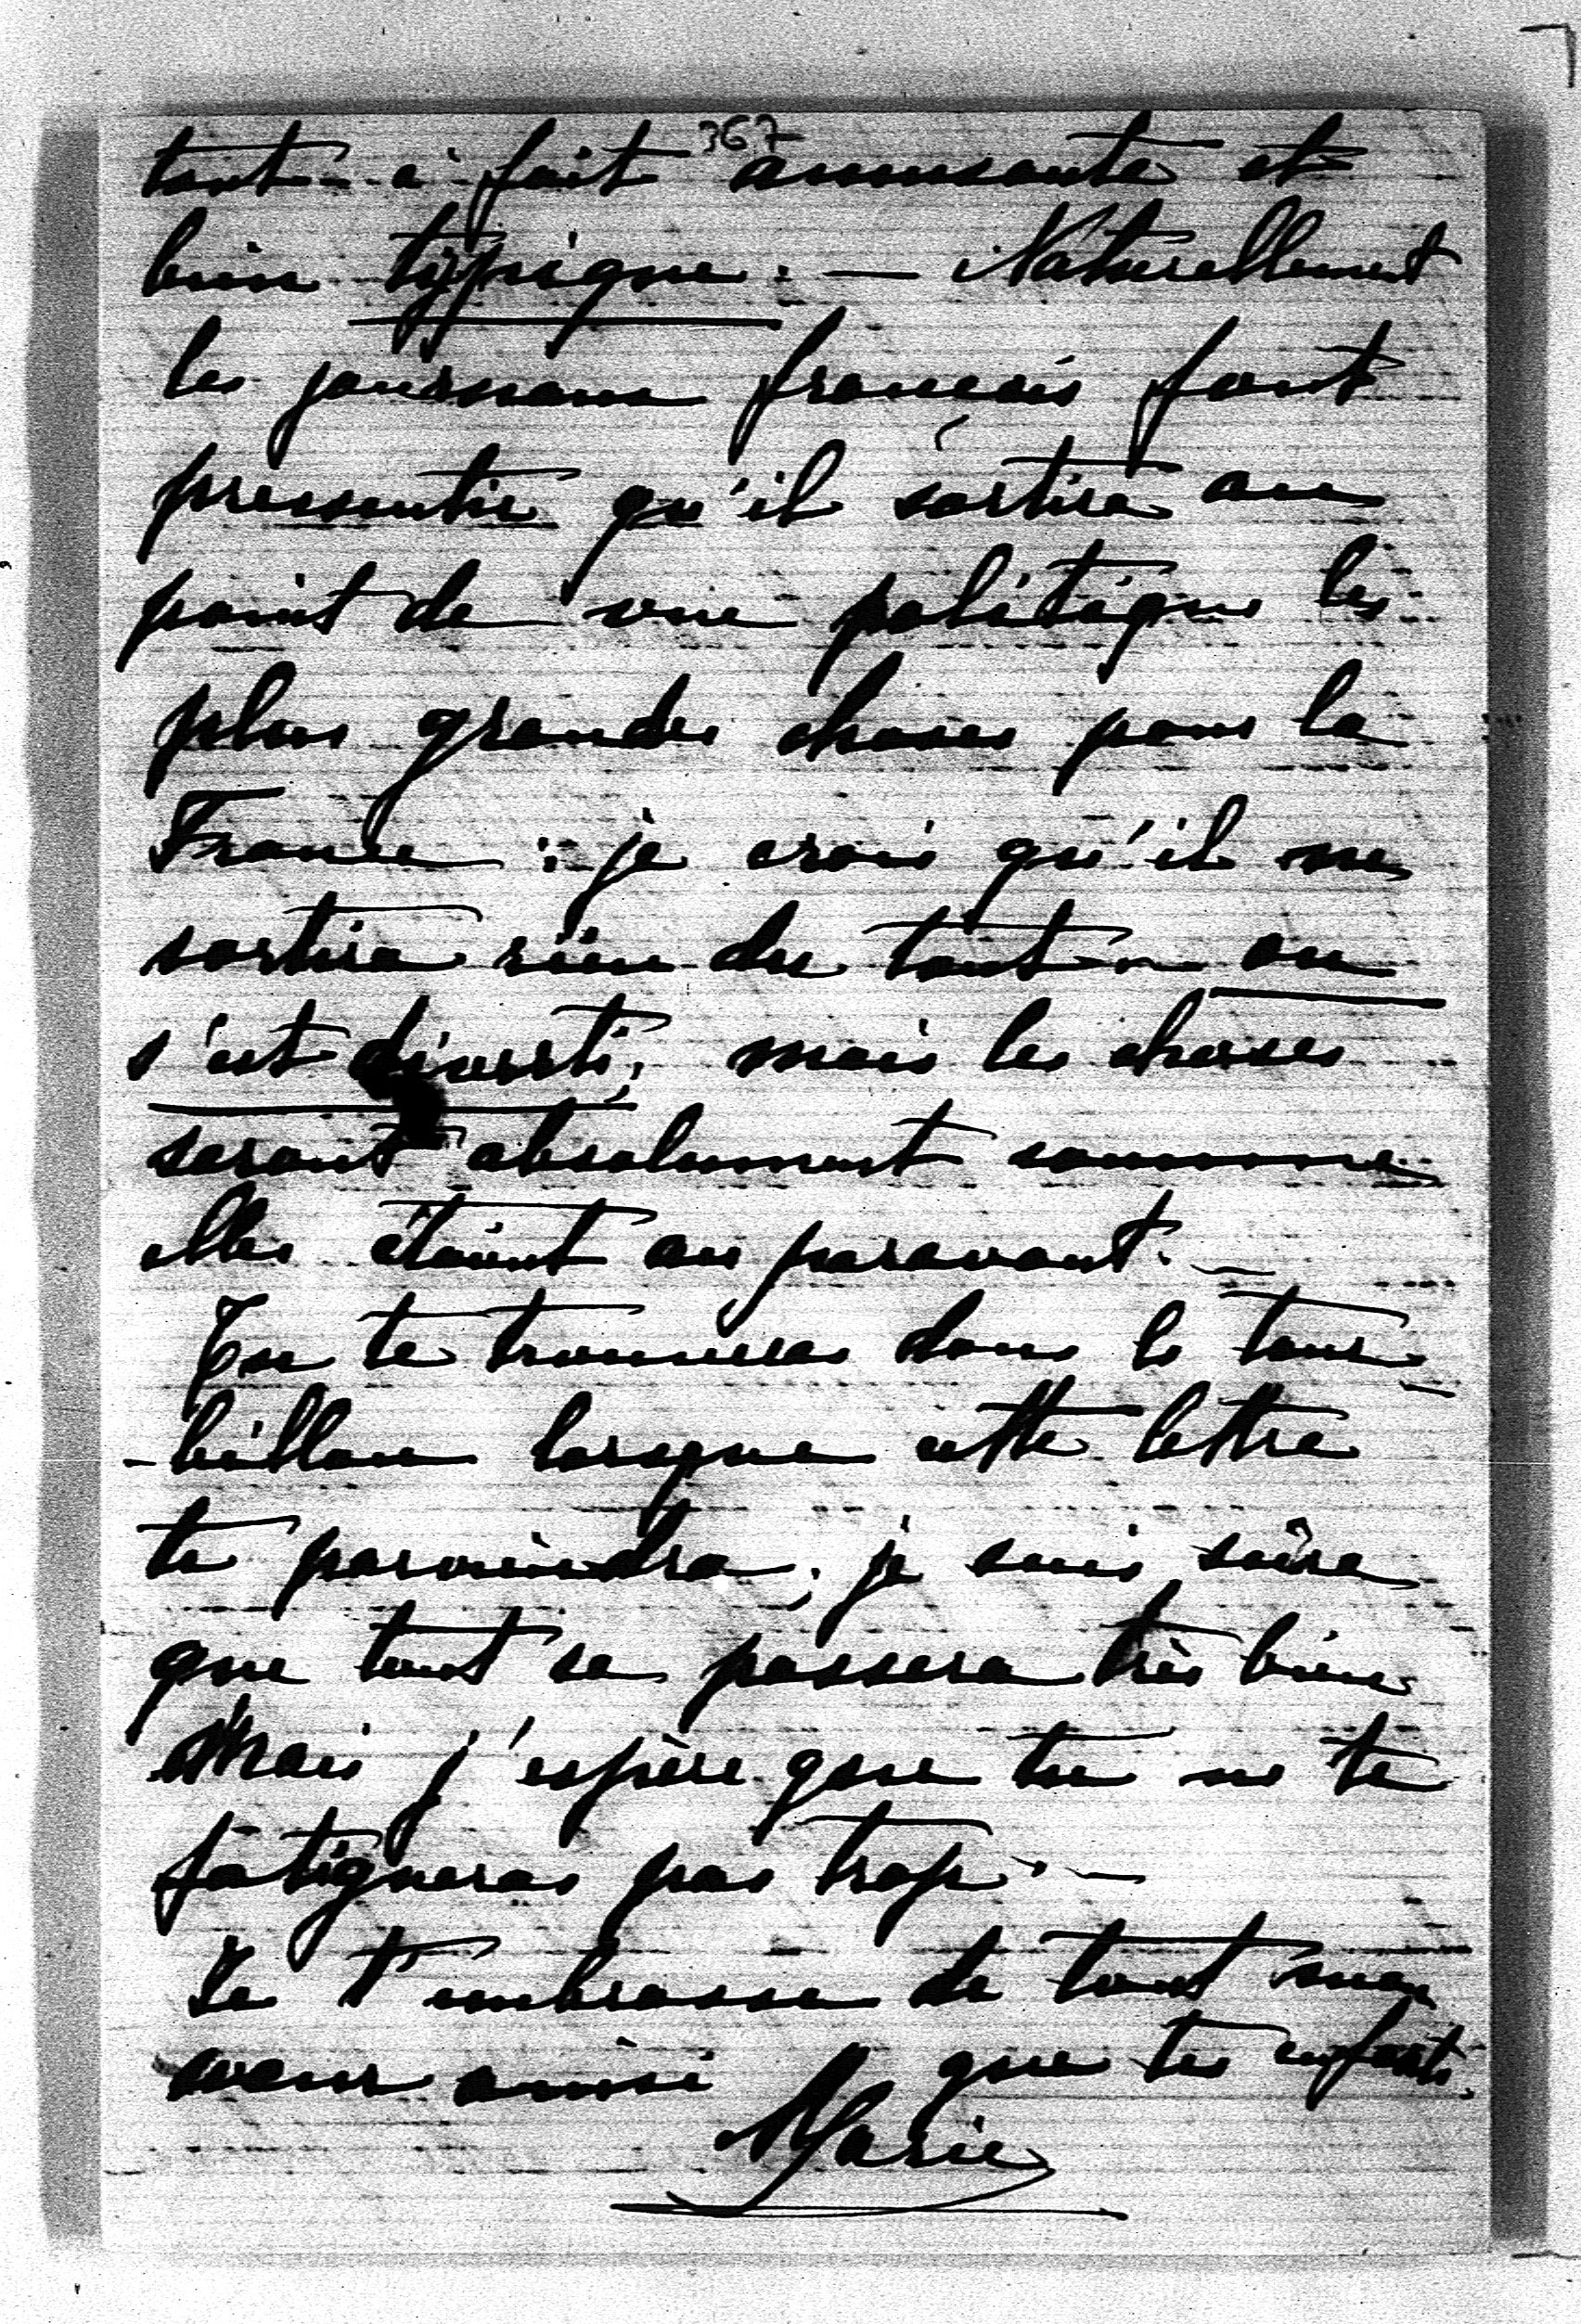 367
tout à fait amusante et
bien typique. — Naturellement
les journaux français font
pressentir qu'il sortira au
point de vue politique les
plus grandes choses pour la
France : je crois qu'il ne
sortira rien du tout — on
s'est diverti; mais les choses
seront absolument comme
elles étaient au paravant. —
Tu te trouveras dans le tour-
-billon lorsque cette lettre
te parviendra; je suis sûre
que tout se passera très bien
Mais j'espère que tu ne te
fatigueras pas trop. —
Je t'embrasse de tout mon
coeur ainsi que tes enfants.
Marie